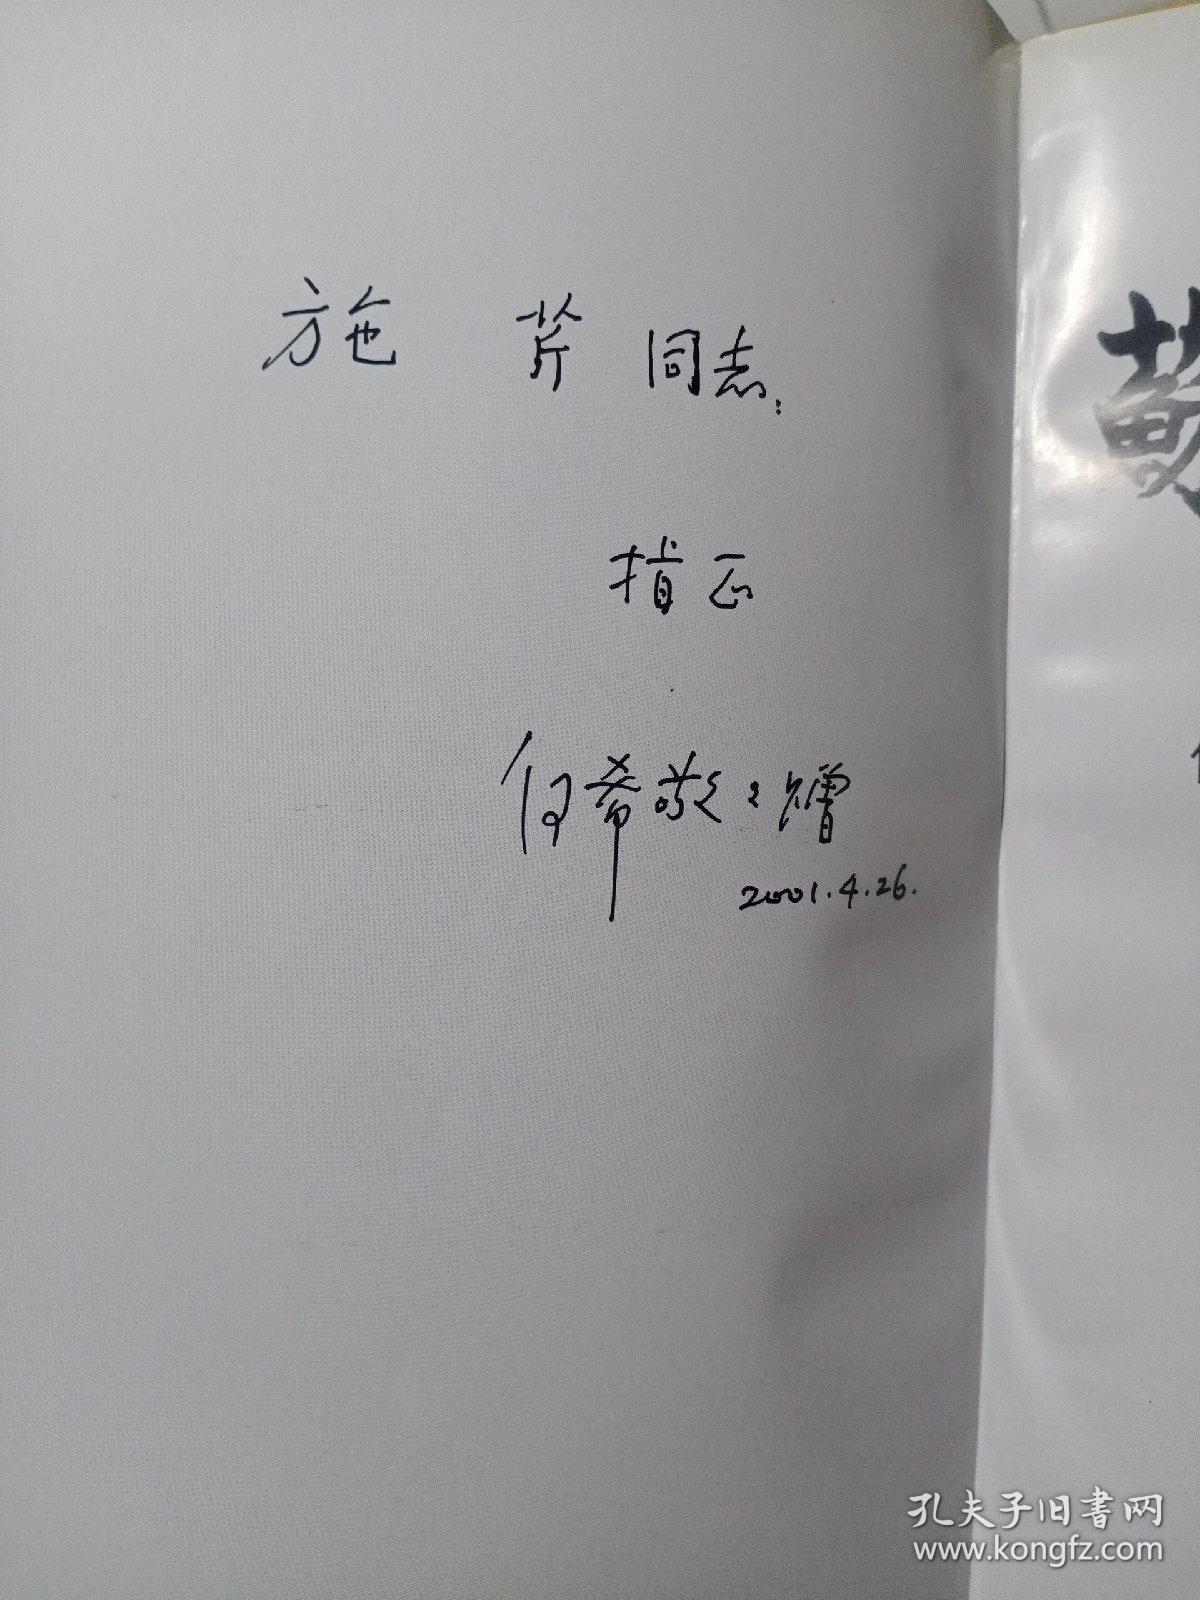 施 芹 同志:
指正
何希敬之赠
2001.4.26.
蘇
孔夫子旧書网
www.kongfz.com